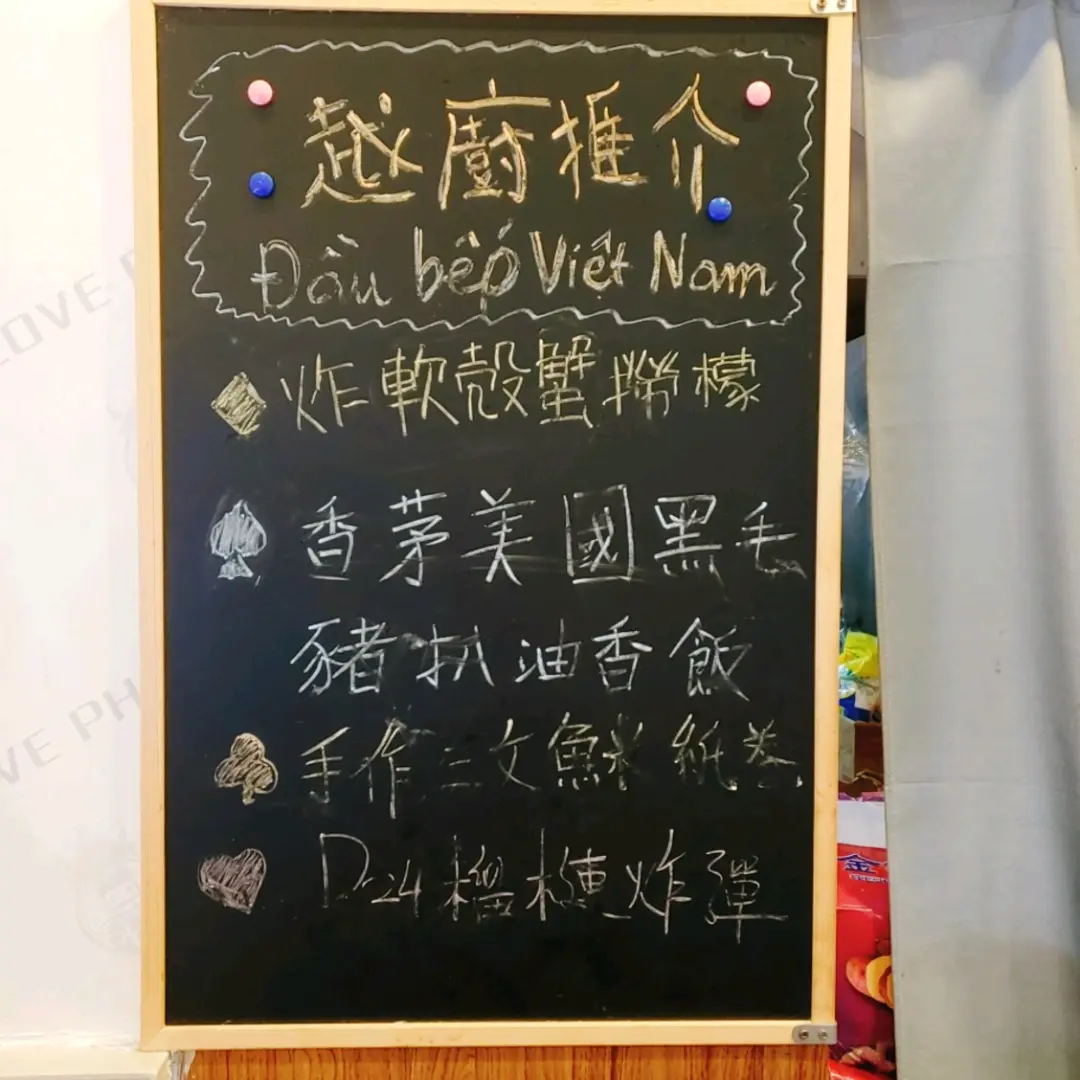 越廚推介
Đầu bếp Việt Nam
炸軟殼蟹撈檬
香茅美國黑毛
豬扒油香飯
手作三文魚米紙卷
D-24榴槤炸彈